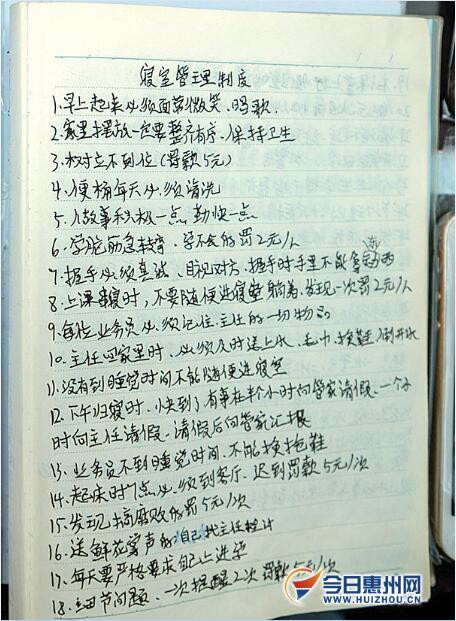 寝室管理制度
1.早上起床必须面带微笑、唱歌
2.家里摆放一定要整齐有序、保持卫生
3.不到位(罚款5元)
4.便桶每天必须清洗
5.做事积极一点、勤快一点
6.学脑筋急转弯、学不会的罚2元/人
7.握手必须真诚、目视对方、握手时手里不能拿东西
8.上课寝时,不要随便进寝室躺着、发现一次罚2元/人
9.每位业务员必须记住主任的一切物品
10.主任回家里时、必须及时送上水、毛巾、换鞋、倒开水
11.没有到睡觉时间不能随便进寝室
12.下午归寝时、有事在半个小时向管家请假、一个小
时向主任请假、请假后向管家汇报
13.业务员不到睡觉时间、不能换拖鞋
14.起床时7点必须到客厅、迟到罚款5元/次
15.发现搞腐败的罚5元/次
16.送鲜花掌声的自己找主任检讨
17.每天要严格要求自己上进
18.细节问题、一次提醒2次罚款5元/次
今日惠州网
WWW.HUIZHOU.CN